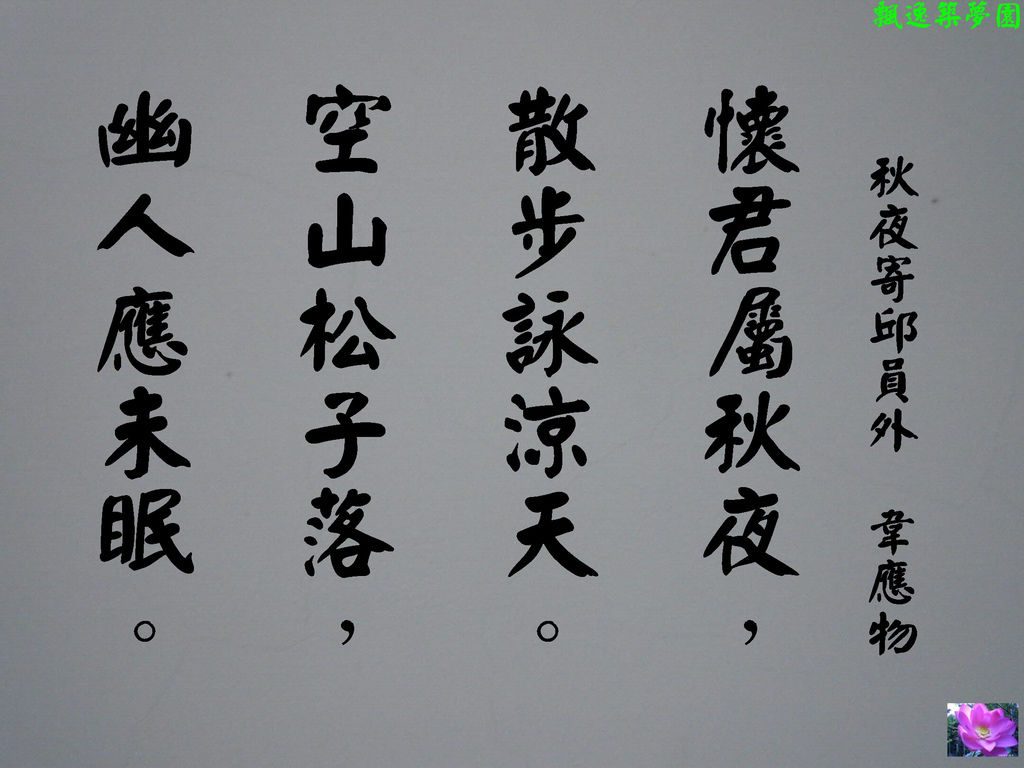 飄逸築夢園
秋夜寄邱員外 韋應物
懷君屬秋夜，
散步詠涼天。
空山松子落，
幽人應未眠。